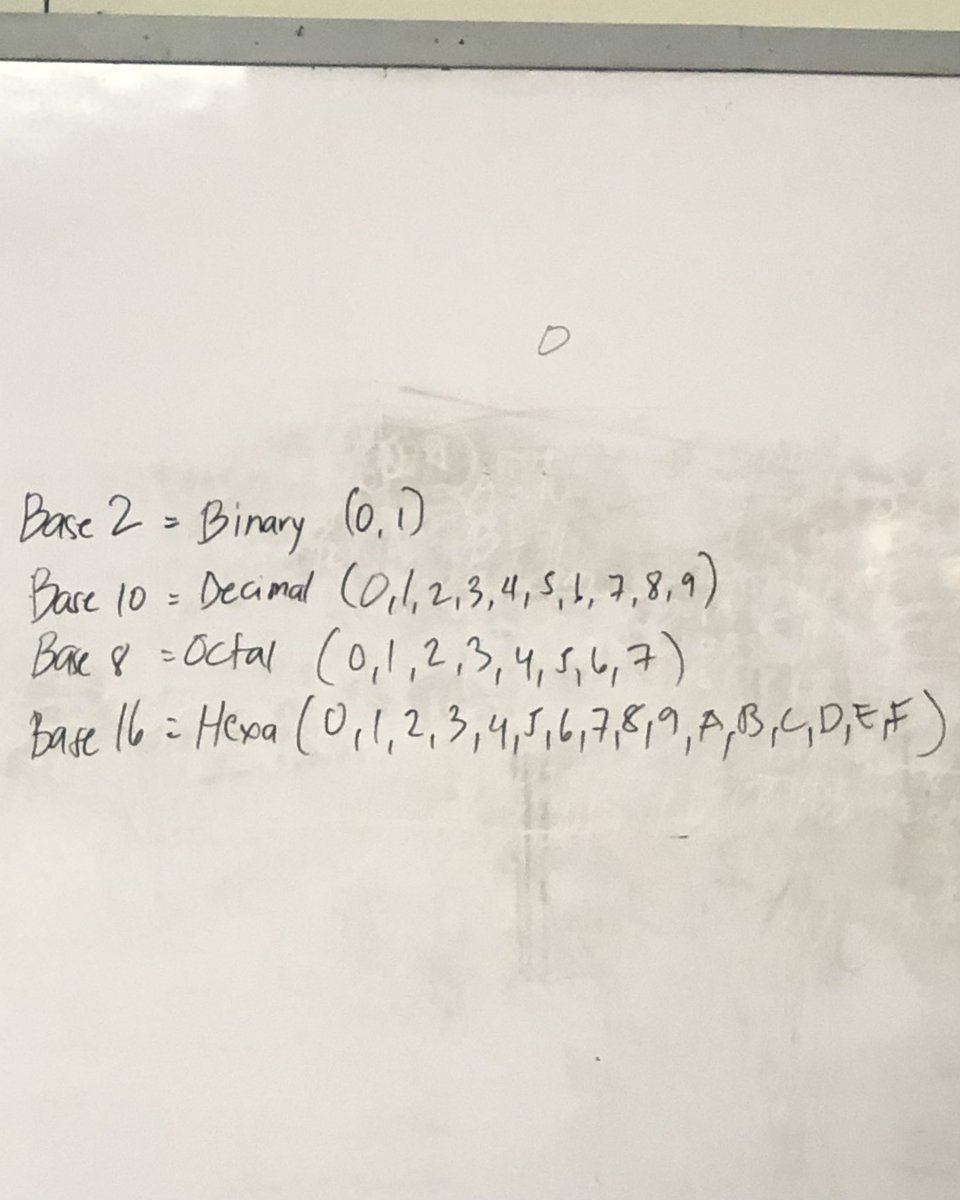 0
Base 2 = Binary (0,1)
Base 10 = Decimal (0,1,2,3,4,5,6,7,8,9)
Base 8 = Octal (0,1,2,3,4,5,6,7)
Base 16 = Hexa (0,1,2,3,4,5,6,7,8,9,A,B,C,D,E,F)